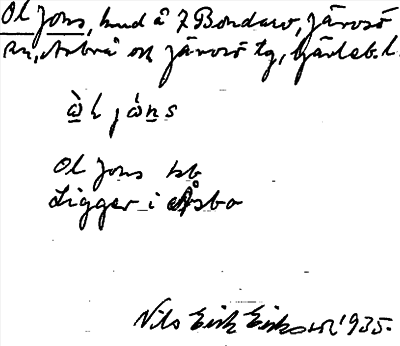 Ol Jons, hmd å 7 Bondarv, Järvsö
sn, Arbrå och Järvsö tg, Gävleb. l.
ὼl jὼns
Ol Jons hb
Ligger i Åsbo
Nils Erik Eriksson 1935.